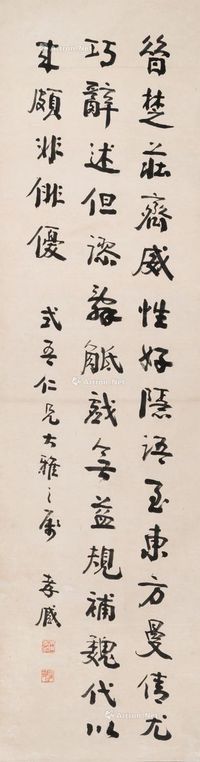 昔楚莊齊威性好隱語至東方曼倩尤
巧辭述但謬辭觝戲無益規補魏代以
來頗非俳優
式吾仁兄大雅之屬
孝臧